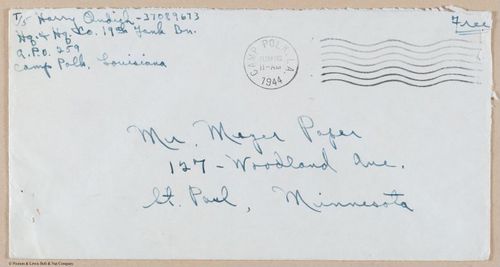 T/5 Harry Ondich - 37089673
Hq. & Hq. Co. 19th Tank Bn.
A.P.O. 259
Camp Polk, Louisiana
Free
CAMP POLK, LA.
1944
Mr. Meyer Paper
127 - Woodland Ave.
St. Paul, Minnesota